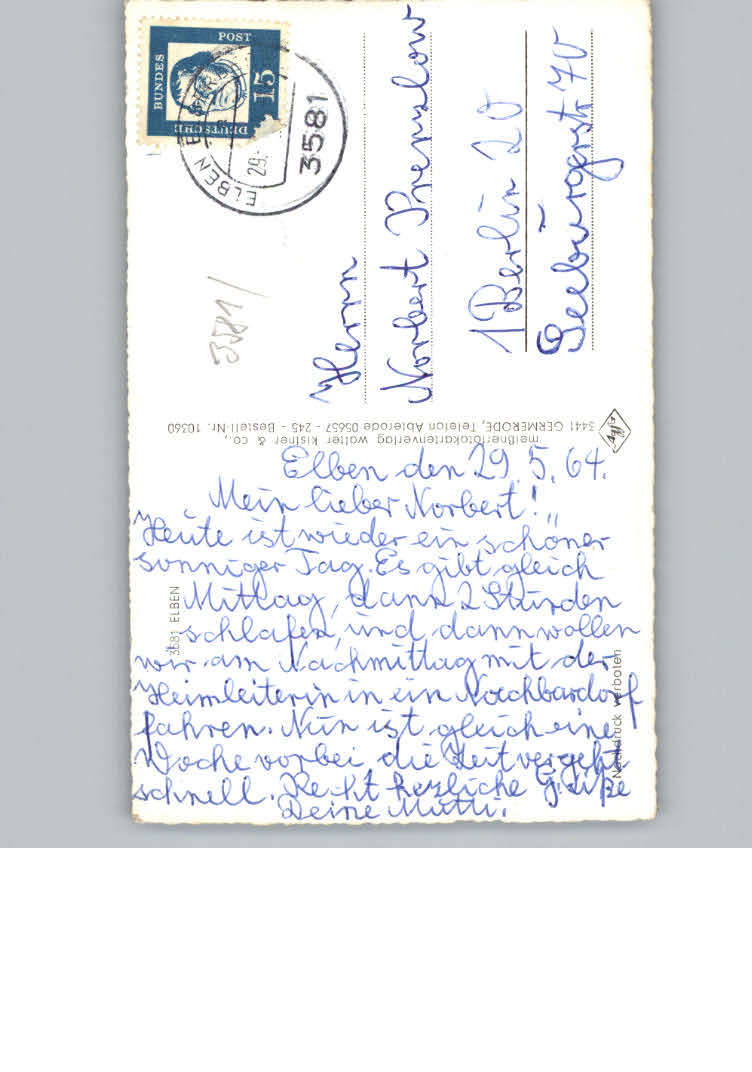 DEUTSCHE
BUNDES
POST
15
ELBEN
29.
3581
3581/
Herrn
Norbert Prenzlow
1 Berlin 20
Seeburgerstr. 70
meißnerfotokartenverlag walter kistner & co.,
3441 GERMERODE, Telefon Abterode 05657 - 245 - Bestell-Nr. 10360
Agfa
3581 ELBEN
Nachdruck verboten
Elben den 29. 5. 64.
„Mein lieber Norbert!"
Heute ist wieder ein schöner
sonniger Tag. Es gibt gleich
Mittag, dann 2 Stunden
schlafen, und dann wollen
wir am Nachmittag mit der
Heimleiterin in ein Nachbardorf
fahren. Nun ist gleich eine
Woche vorbei, die Zeit vergeht
schnell. Recht herzliche Grüße
Deine Mutti.